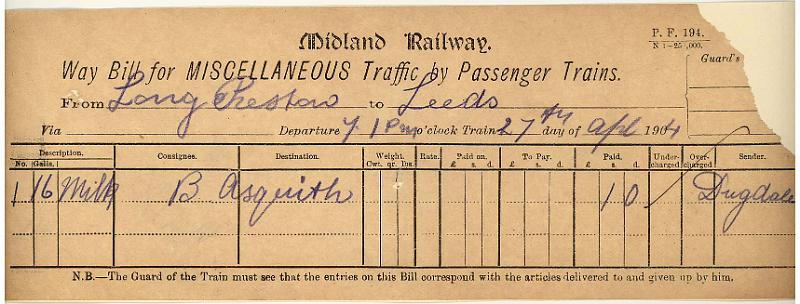 Midland Railway.
P. F. 194.
N 1—25 ,000.
Way Bill for MISCELLANEOUS Traffic by Passenger Trains.
Guard's
From Long Preston to Leeds
Via Departure 7.1 Pm o'clock Train 27th day of Apl 1904
Description. Consignee. Destination. Weight. Rate. Paid on. To Pay. Paid. Under- Over- Sender.
No. Galls. Cwt. qr. lbs. £ s. d. £ s. d. £ s. d. charged charged
1 16 Milk B Asquith 1 0 Dugdale
N.B.—The Guard of the Train must see that the entries on this Bill correspond with the articles delivered to and given up by him.